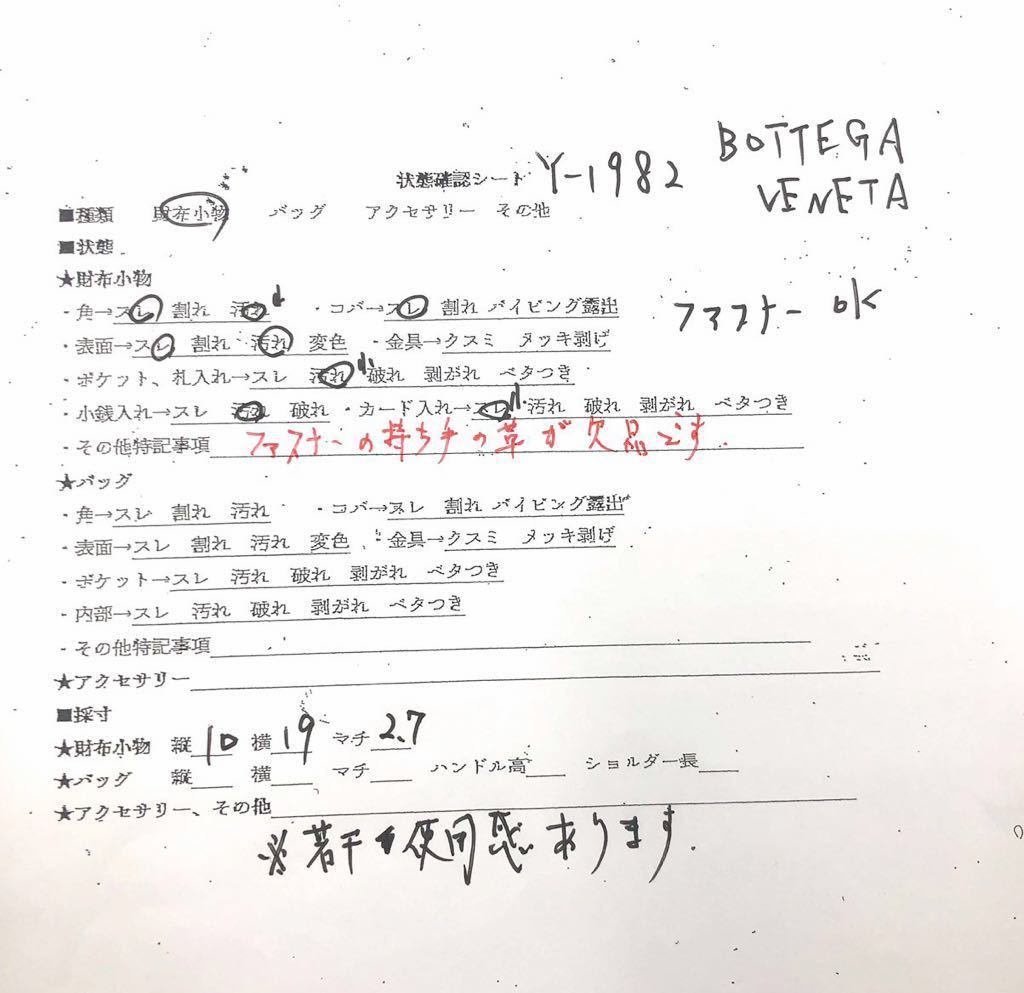 BOTTEGA
VENETA
状態確認シート Y-1982
■種類 財布小物 バッグ アクセサリー その他
■状態
★財布小物
・角→スレ 割れ 汚れ 小 ・コバ→スレ 割れ パイピング露出 ファスナー ok
・表面→スレ 割れ 汚れ 変色 ・金具→クスミ メッキ剥げ
・ポケット、札入れ→スレ 汚れ 小 破れ 剥がれ ベタつき
・小銭入れ→スレ 汚れ 破れ ・カード入れ→スレ 小 汚れ 破れ 剥がれ ベタつき
・その他特記事項 ファスナーの持ち手の革が欠品です.
★バッグ
・角→スレ 割れ 汚れ ・コバ→スレ 割れ パイピング露出
・表面→スレ 割れ 汚れ 変色 ・金具→クスミ メッキ剥げ
・ポケット→スレ 汚れ 破れ 剥がれ ベタつき
・内部→スレ 汚れ 破れ 剥がれ ベタつき
・その他特記事項
★アクセサリー
■採寸
★財布小物 縦 10 横 19 マチ 2.7
★バッグ 縦 横 マチ ハンドル高 ショルダー長
★アクセサリー、その他
※若干使用感あります.